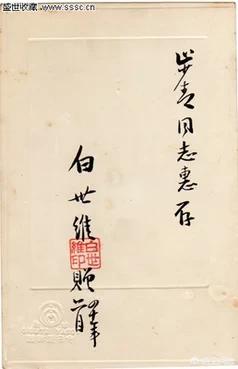 盛世收藏 www.sssc.cn
步青同志惠存
白世維贈
白世維印